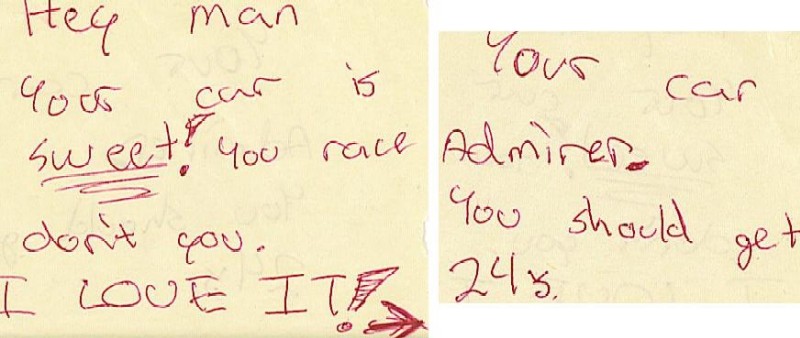 Hey man
Your car is
sweet! You race
don't you.
I LOVE IT!
Your car
Admirer.
You should get
24s.